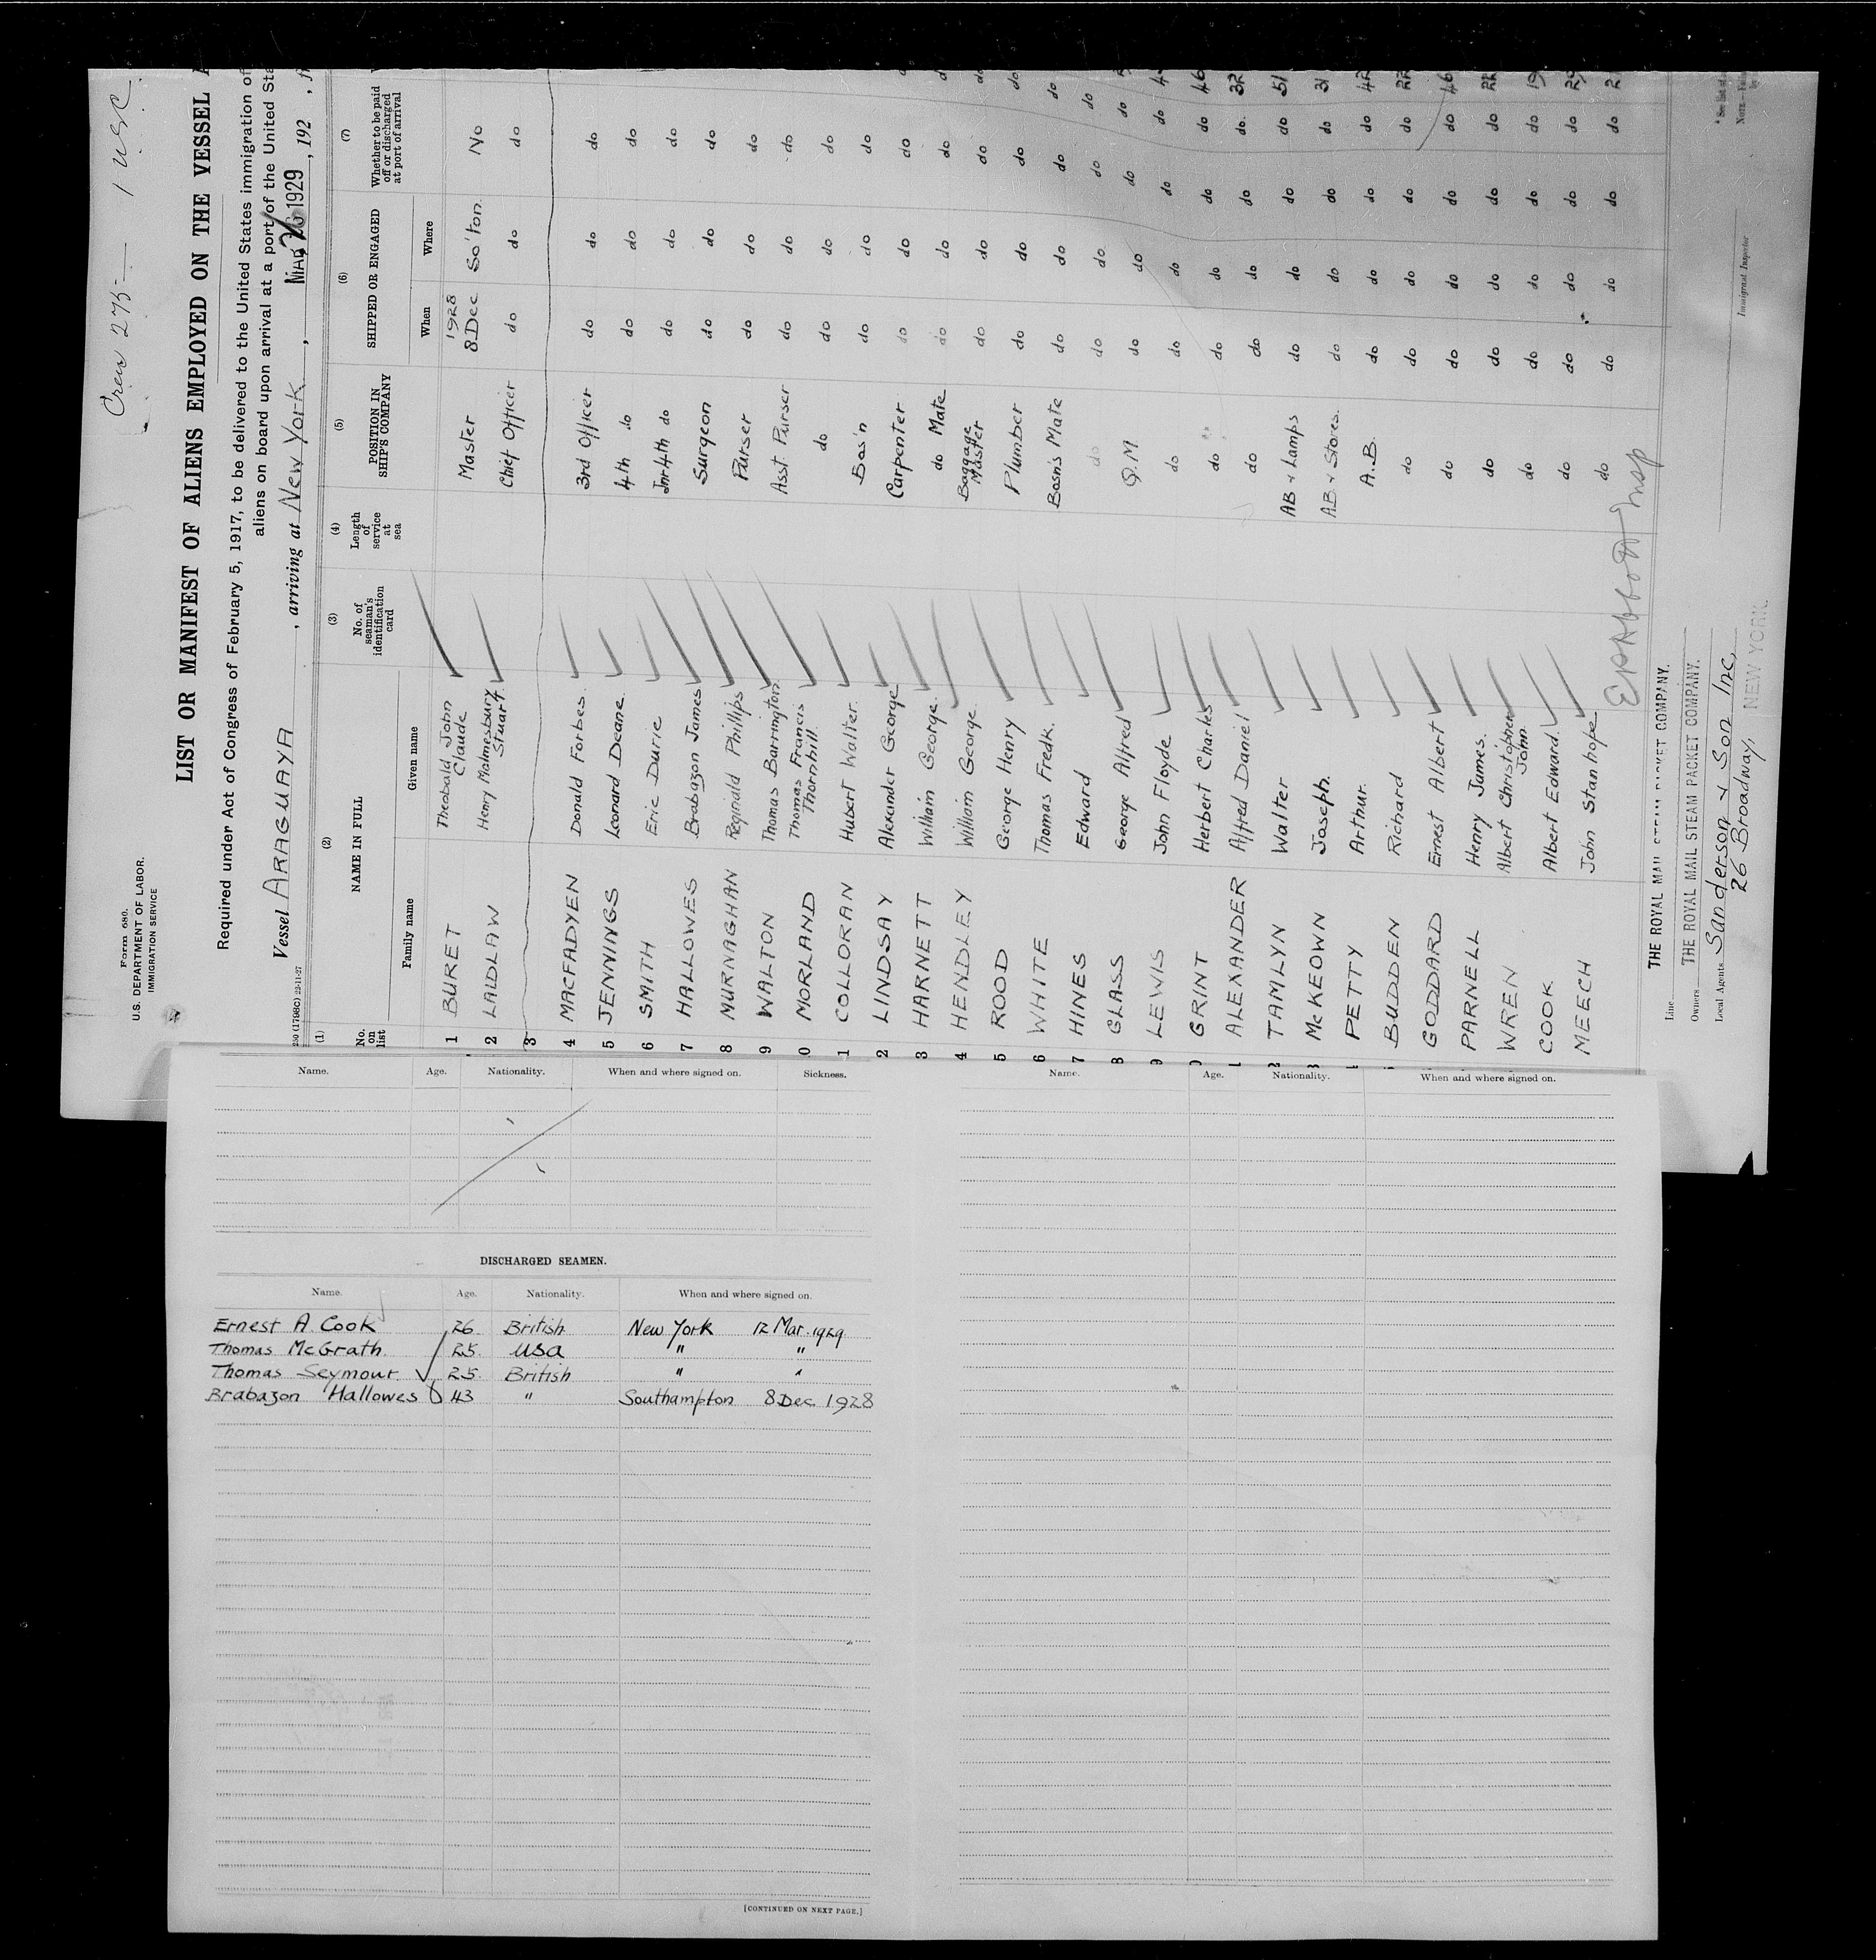 Crew 275 — 1 USC.
Form 680.
U.S. DEPARTMENT OF LABOR.
IMMIGRATION SERVICE
LIST OR MANIFEST OF ALIENS EMPLOYED ON THE VESSEL
Required under Act of Congress of February 5, 1917, to be delivered to the United States immigration of
aliens on board upon arrival at a port of the United Sta
Vessel ARAGUAYA, arriving at New York, MAR 26 1929, 192
(1) (2) (3) (4) (5) (6) (7)
No. on list NAME IN FULL No. of seaman's identification card Length of service at sea POSITION IN SHIP'S COMPANY SHIPPED OR ENGAGED Whether to be paid off or discharged at port of arrival
Family name Given name When Where
1 BURET Theobald John Claude Master 1928 8 Dec So'ton No
2 LAIDLAW Henry Malmesbury Stuart Chief Officer do do do
3
4 MACFADYEN Donald Forbes. 3rd Officer do do do
5 JENNINGS Leonard Deane. 4th do do do do
6 SMITH Eric Durie Jnr 4th do do do do
7 HALLOWES Brabazon James Surgeon do do do
8 MURNAGHAN Reginald Phillips Purser do do do
9 WALTON Thomas Barrington Asst. Purser do do do
0 MORLAND Thomas Francis Thornhill. do do do do
1 COLLORAN Hubert Walter. Bos'n do do do
2 LINDSAY Alexander George Carpenter do do do
3 HARNETT William George. do Mate do do do
4 HENDLEY William George. Baggage Master do do do
5 ROOD George Henry Plumber do do do do
6 WHITE Thomas Fredk. Bosn's Mate do do do do
7 HINES Edward do do do do do
8 GLASS George Alfred Q.M do do do do
9 LEWIS John Floyde do do do do do
0 GRINT Herbert Charles do do do do do 46
1 ALEXANDER Alfred Daniel do do do do do. 32
2 TAMLYN Walter AB + Lamps do do do do 51
3 McKEOWN Joseph. AB + Stores. do do do do 31
PETTY Arthur. A.B. do do do do 42
BUDDEN Richard do do do do do 22
GODDARD Ernest Albert do do do do do 46
PARNELL Henry James. do do do do do 22
WREN Albert Christopher John. do do do do do 19
COOK Albert Edward. do do do do do 29
MEECH John Stanhope do do do do do 21
Line THE ROYAL MAIL STEAM PACKET COMPANY.
Owners THE ROYAL MAIL STEAM PACKET COMPANY.
Local Agents Sanderson & Son Inc,
26 Broadway, NEW YORK.
Immigrant Inspector
Name. Age. Nationality. When and where signed on. Sickness.
DISCHARGED SEAMEN.
Name. Age. Nationality. When and where signed on.
Ernest A. Cook 26 British New York 12 Mar. 1929
Thomas McGrath 25 USA " "
Thomas Seymour 25 British " "
Brabazon Hallowes 43 " Southampton 8 Dec 1928
[CONTINUED ON NEXT PAGE.]
Name. Age. Nationality. When and where signed on.